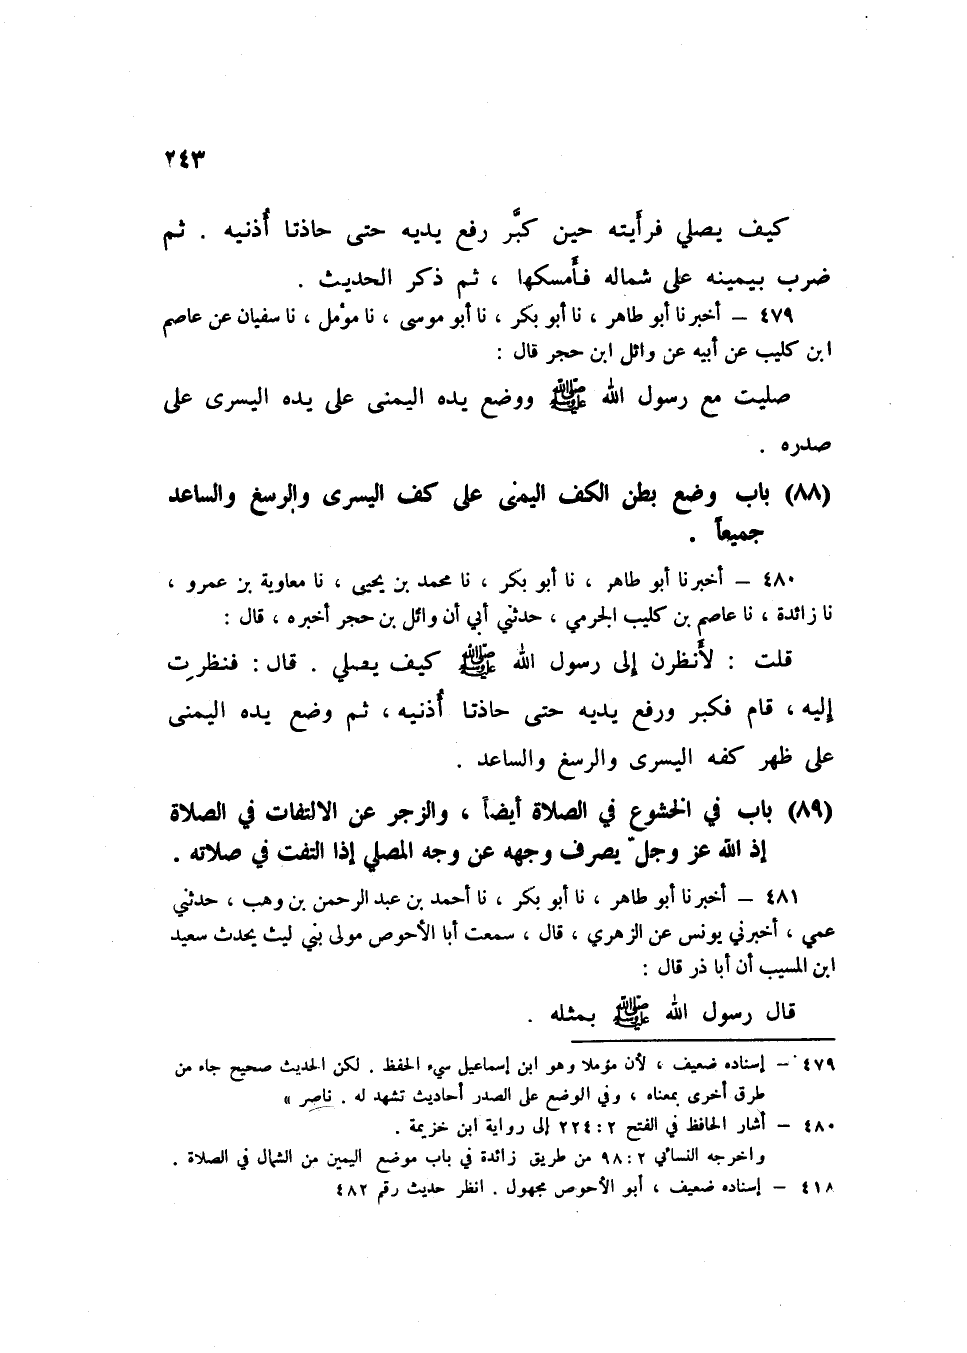 ٢٤٣
كيف يصلي فرأيته حين كبَّر رفع يديه حتى حاذتا أُذنيه . ثم
ضرب بيمينه على شماله فأَمسكها ، ثم ذكر الحديث .
٤٧٩ – أخبرنا أبو طاهر ، نا أبو بكر ، نا أبو موسى ، نا مؤمل ، نا سفيان عن عاصم
ابن كليب عن أبيه عن وائل ابن حجر قال :
صليت مع رسول الله ﷺ ووضع يده اليمنى على يده اليسرى على
صدره .
(٨٨) باب وضع بطن الكف اليمنى على كف اليسرى والرسغ والساعد
جميعاً .
٤٨٠ – أخبرنا أبو طاهر ، نا أبو بكر ، نا محمد بن يحيى ، نا معاوية بن عمرو ،
نا زائدة ، نا عاصم بن كليب الجرمي ، حدثني أبي أن وائل بن حجر أخبره ، قال :
قلت : لأَنظرن إلى رسول الله ﷺ كيف يصلي . قال : فنظرت
إليه ، قام فكبر ورفع يديه حتى حاذتا أُذنيه ، ثم وضع يده اليمنى
على ظهر كفه اليسرى والرسغ والساعد .
(٨٩) باب في الخشوع في الصلاة أيضاً ، والزجر عن الالتفات في الصلاة
إذ الله عز وجلّ يصرف وجهه عن وجه المصلي إذا التفت في صلاته .
٤٨١ – أخبرنا أبو طاهر ، نا أبو بكر ، نا أحمد بن عبد الرحمن بن وهب ، حدثني
عمي ، أخبرني يونس عن الزهري ، قال ، سمعت أبا الأحوص مولى بني ليث يحدث سعيد
ابن المسيب أن أبا ذر قال :
قال رسول الله ﷺ بمثله .
٤٧٩ – إسناده ضعيف ، لأن مؤملا وهو ابن إسماعيل سيء الحفظ . لكن الحديث صحيح جاء من
طرق أخرى بمعناه ، وفي الوضع على الصدر أحاديث تشهد له . ناصر »
٤٨٠ – أشار الحافظ في الفتح ٢ : ٢٢٤ إلى رواية ابن خزيمة .
واخرجه النسائي ٢ : ٩٨ من طريق زائدة في باب موضع اليمين من الشمال في الصلاة .
٤١٨ – إسناده ضعيف ، أبو الأحوص مجهول . انظر حديث رقم ٤٨٢